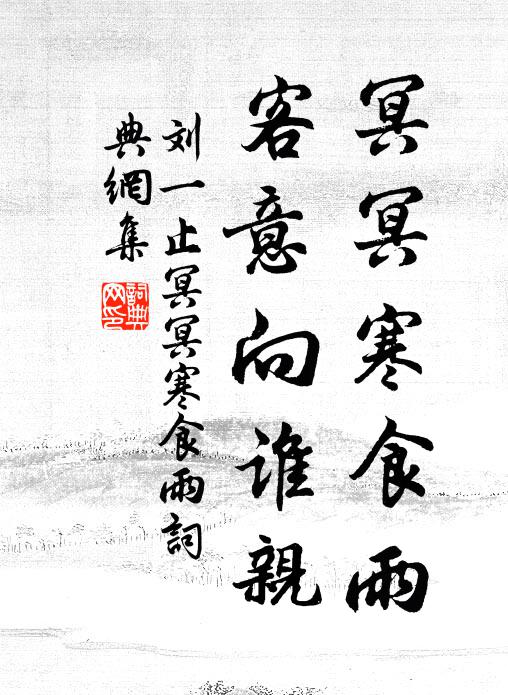 冥冥寒食雨
客意向谁親
刘一止冥冥寒食雨詞
典網集
詞典网印